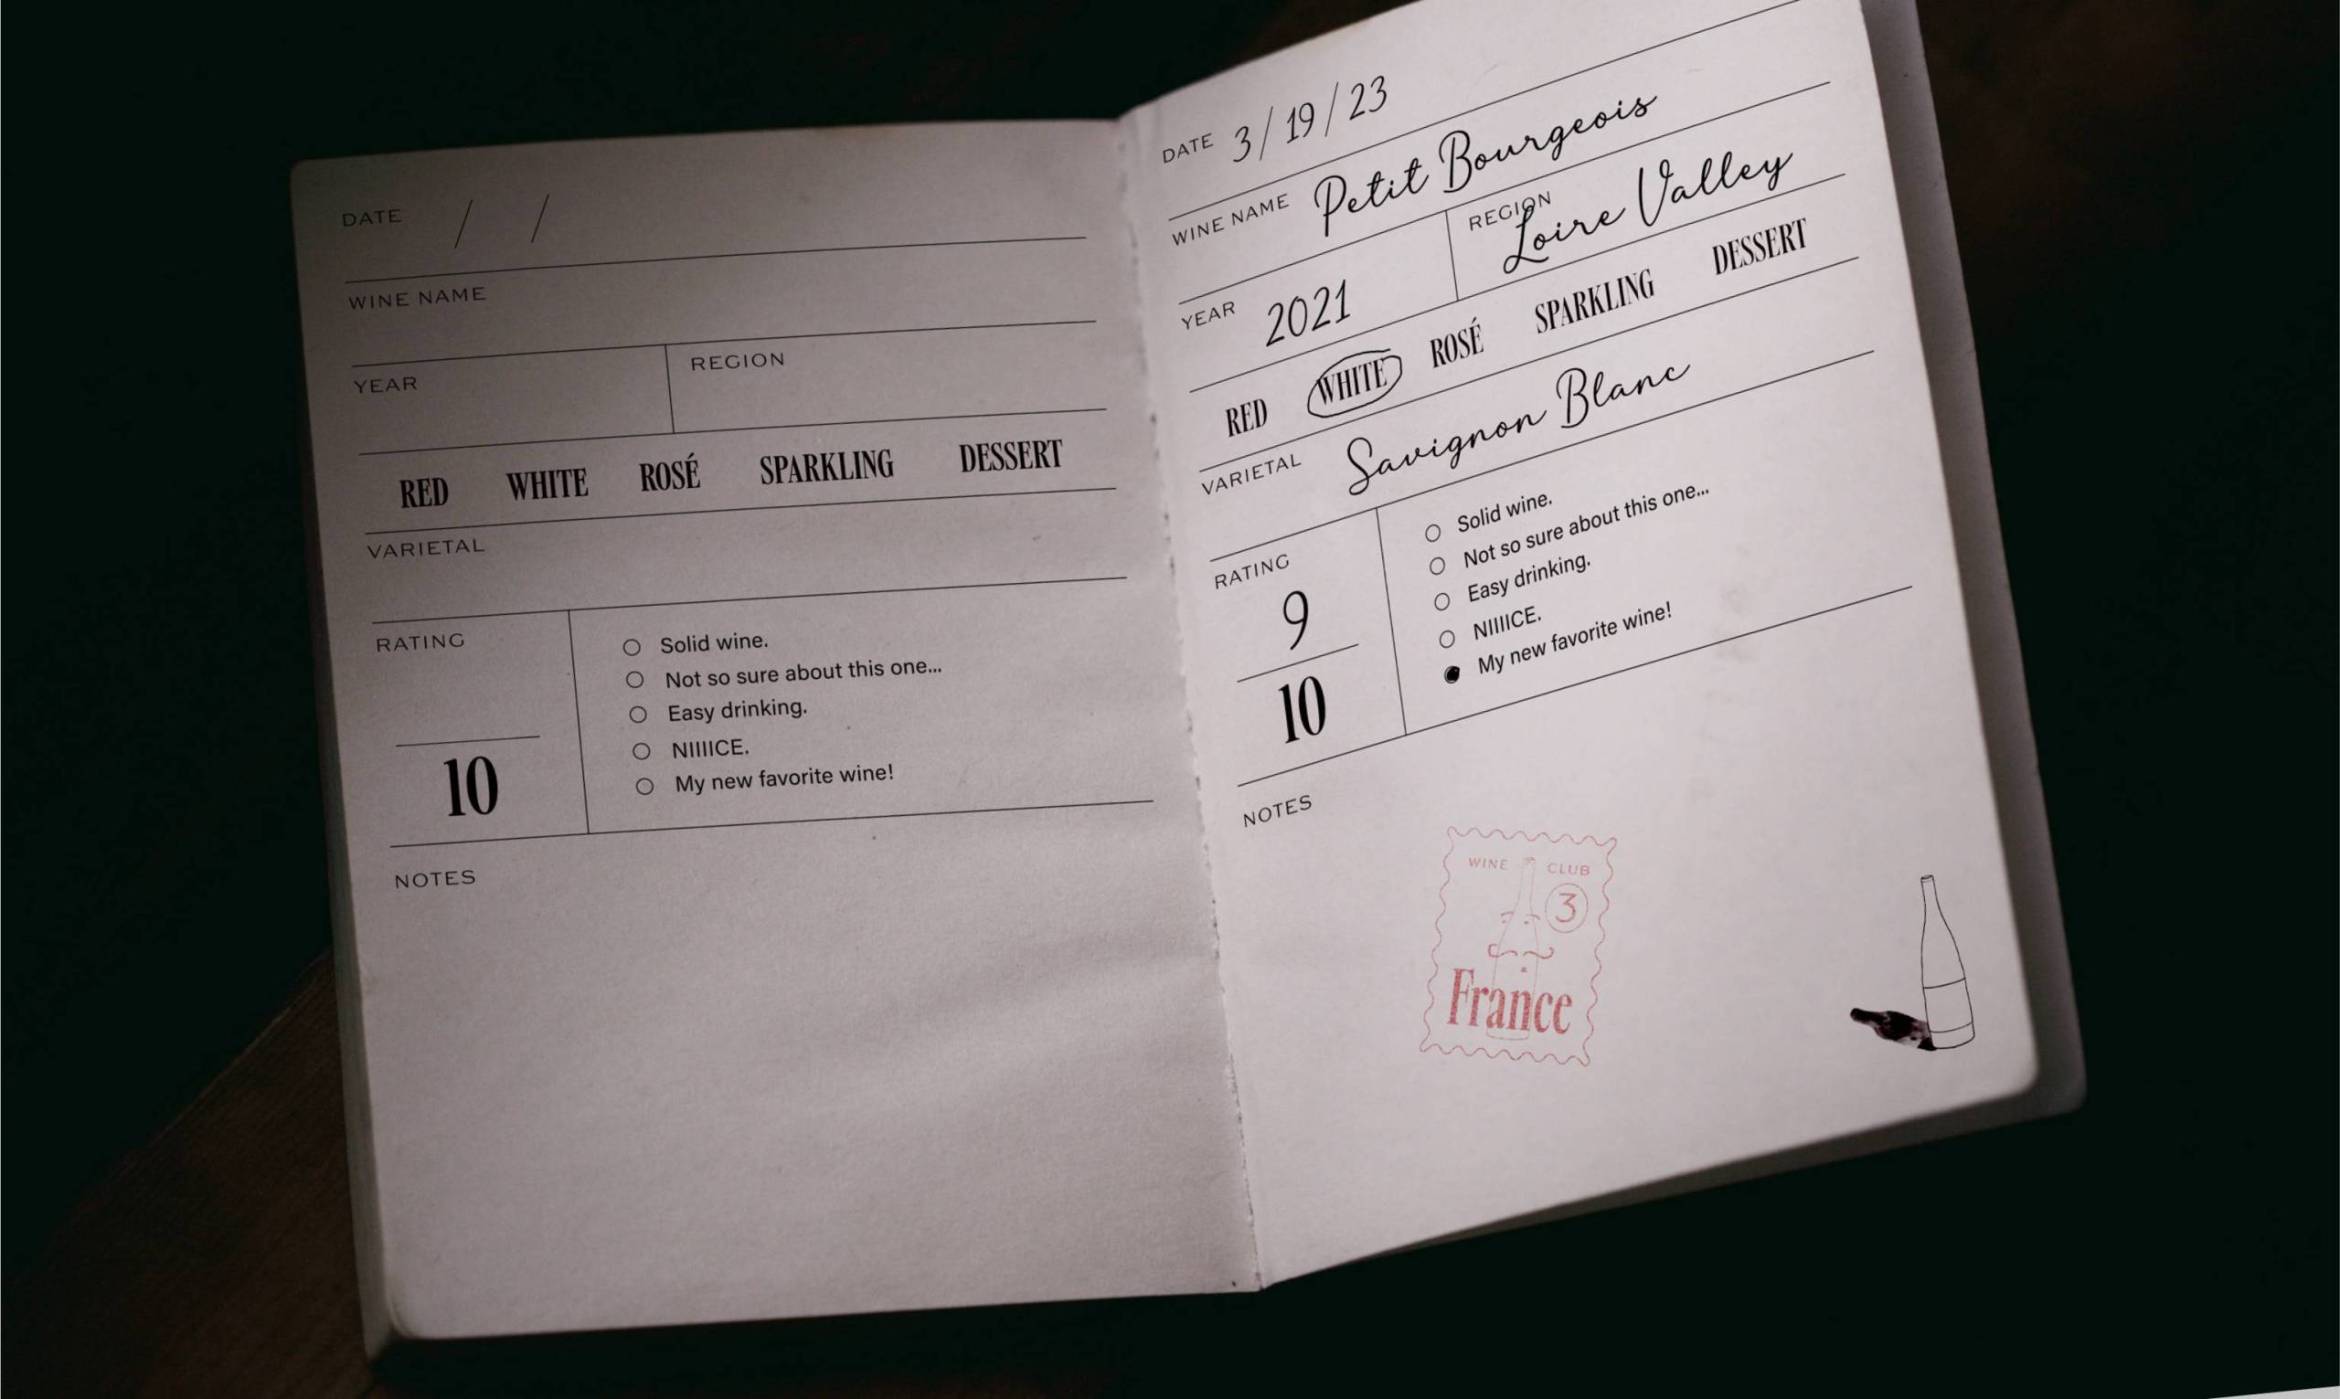 DATE / /
WINE NAME
YEAR REGION
RED WHITE ROSÉ SPARKLING DESSERT
VARIETAL
RATING
10
Solid wine.
Not so sure about this one...
Easy drinking.
NIIIICE.
My new favorite wine!
NOTES
DATE 3/19/23
WINE NAME Petit Bourgeois
YEAR 2021 REGION Loire Valley
RED WHITE ROSÉ SPARKLING DESSERT
VARIETAL Savignon Blanc
RATING
9
10
Solid wine.
Not so sure about this one...
Easy drinking.
NIIIICE.
My new favorite wine!
NOTES
WINE CLUB
3
France